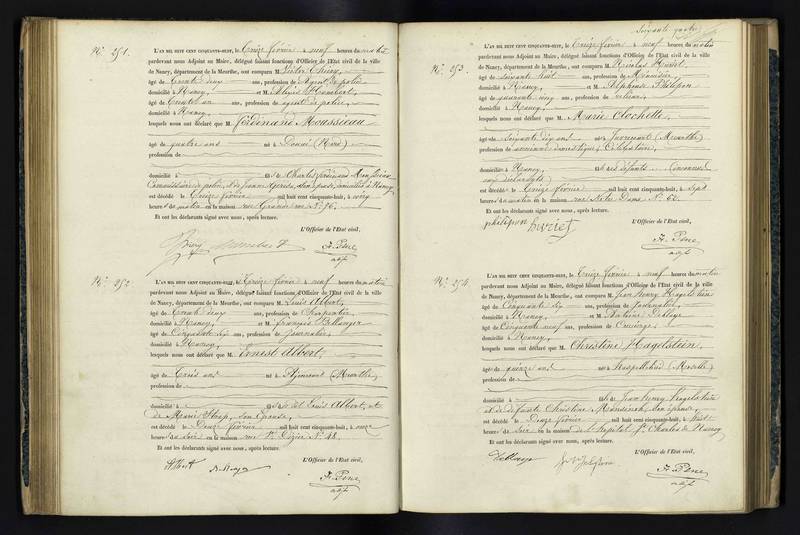 N.º 251.
L'AN MIL HUIT CENT CINQUANTE-HUIT, le treize février à neuf heures du matin
pardevant nous Adjoint au Maire, délégué faisant fonctions d'Officier de l'Etat civil de la ville
de Nancy, département de la Meurthe, ont comparu M. Victor
âgé de trente deux ans, profession de Agent de police
domicilié à Nancy, et M. Alexis Humbert
âgé de trente un ans, profession de agent de police,
domicilié à Nancy,
lesquels nous ont déclaré que M. Ferdinand Mousseau
âgé de quatre ans né à Douai (Nord)
profession de
domicilié à fils de Charles Ferdinand Mousseau
Commissaire de police, et de Jeanne son épouse, domiciliés à Nancy,
est décédé le treize février mil huit cent cinquante-huit, à
heures du matin en la maison rue Grande rue N.º
Et ont les déclarants signé avec nous, après lecture.
L'Officier de l'Etat civil,
Humbert
adj.t
N.º 252.
L'AN MIL HUIT CENT CINQUANTE-HUIT, le treize février à neuf heures du matin
pardevant nous Adjoint au Maire, délégué faisant fonctions d'Officier de l'Etat civil de la ville
de Nancy, département de la Meurthe, ont comparu M. Louis Albert,
âgé de trente deux ans, profession de Charpentier,
domicilié à Nancy, et M. François
âgé de cinquante six ans, profession de Journalier,
domicilié à Nancy,
lesquels nous ont déclaré que M. Ernest Albert,
âgé de trois ans né à (Meurthe)
profession de
domicilié à fils dudit Louis Albert, et
de Marie son épouse,
est décédé le douze février mil huit cent cinquante-huit, à onze
heures du soir en la maison rue S.t Dizier N.º
Et ont les déclarants signé avec nous, après lecture.
L'Officier de l'Etat civil,
Albert
adj.t
Soixante quatre
N.º 253.
L'AN MIL HUIT CENT CINQUANTE-HUIT, le treize février à neuf heures du matin
pardevant nous Adjoint au Maire, délégué faisant fonctions d'Officier de l'Etat civil de la ville
de Nancy, département de la Meurthe, ont comparu M. Nicolas Huriet
âgé de soixante huit ans, profession de Menuisier
domicilié à Nancy, et M. Delphine Philipon
âgé de quarante cinq ans, profession de relieur
domicilié à Nancy,
lesquels nous ont déclaré que M. Marie Clochette
âgé de soixante dix ans né à (Meurthe)
profession de ancienne domestique, Célibataire,
domicilié à Nancy, fille des défunts (inconnus
aux déclarants)
est décédé le treize février mil huit cent cinquante-huit, à sept
heures du matin en la maison rue Notre Dame N.º
Et ont les déclarants signé avec nous, après lecture.
philipon huriet
L'Officier de l'Etat civil,
adj.t
N.º 254.
L'AN MIL HUIT CENT CINQUANTE-HUIT, le treize février à neuf heures du matin
pardevant nous Adjoint au Maire, délégué faisant fonctions d'Officier de l'Etat civil de la ville
de Nancy, département de la Meurthe, ont comparu M. Jean Henry Hagelstein
âgé de cinquante six ans, profession de Journalier,
domicilié à Nancy, et M. Antoine
âgé de cinquante neuf ans, profession de Concierge,
domicilié à Nancy,
lesquels nous ont déclaré que M. Christine Hagelstein,
âgé de quinze ans né à (Moselle)
profession de
domicilié à fille de Jean Henry Hagelstein
et de défunte Christine son épouse,
est décédé le douze février mil huit cent cinquante-huit, à huit
heures du soir en la maison de l'hôpital S.t Charles de Nancy
Et ont les déclarants signé avec nous, après lecture.
L'Officier de l'Etat civil,
adj.t